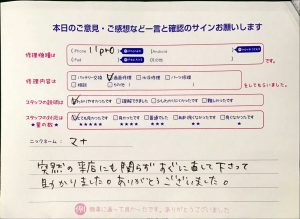 本日のご意見・ご感想など一言と確認のサインお願いします
修理機種は
iPhone 11pro
Android
iPad
です。
修理内容は
バッテリー交換 画面修理 水没修理 パーツ修理
相談 その他
をしてもらいました。
スタッフの説明は
わかりやすかったです 理解できました 少しわかりにくかったです 難しかったです
スタッフの対応は
★星の数★
とても良かったです 良かったです 普通でした 良くなかったです
★★★★★ ★★★★ ★★★ ★★ ★
ニックネーム：マナ
突然の来店にも関らずすぐに直して下さって
助かりました。ありがとうございました。